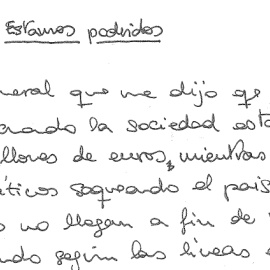 Estamos podridos
neral que me dijo que
uando la sociedad esta
llones de euros, mientras
áticos saqueando el pais
no llegan a fin de
ndo según las líneas